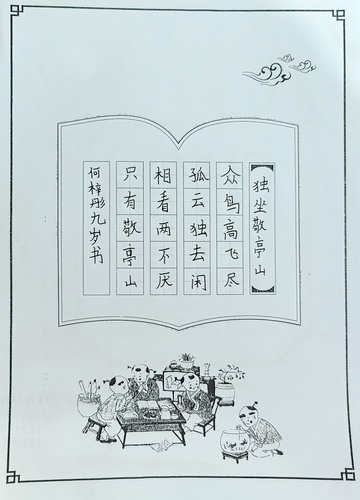 独坐敬亭山
众鸟高飞尽
孤云独去闲
相看两不厌
只有敬亭山
何梓彤九岁书